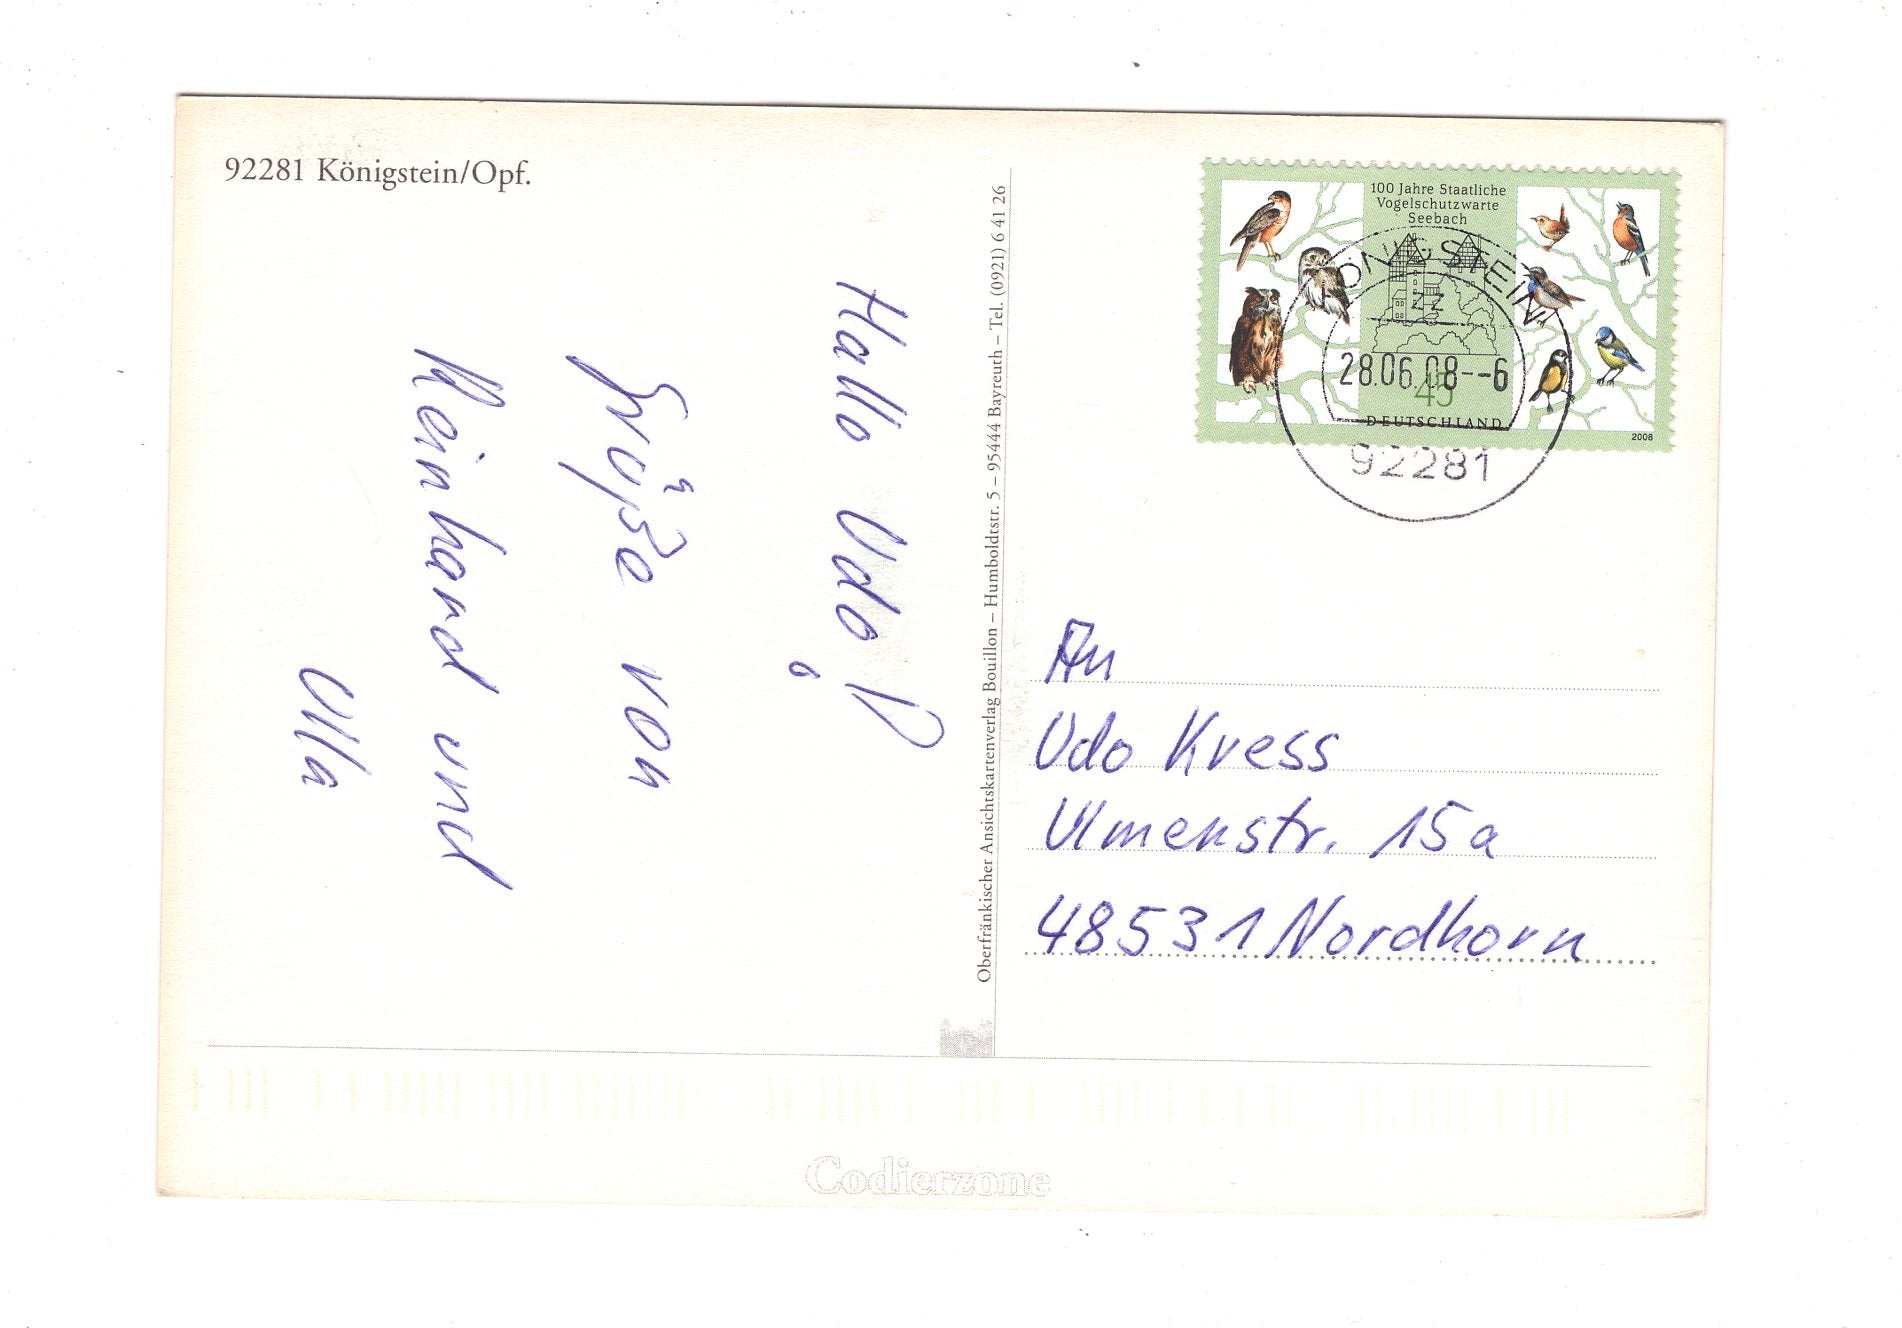 92281 Königstein/Opf.
Hallo Udo!
Grüße von
Reinhard und
Ulla
Oberfränkischer Ansichtskartenverlag Bouillon – Humboldtstr. 5 – 95444 Bayreuth – Tel. (0921) 6 41 26
100 Jahre Staatliche
Vogelschutzwarte
Seebach
45
DEUTSCHLAND
2008
KÖNIGSTEIN
zz
28.06.08--6
92281
An
Udo Kress
Ulmenstr. 15a
48531 Nordhorn
Codierzone